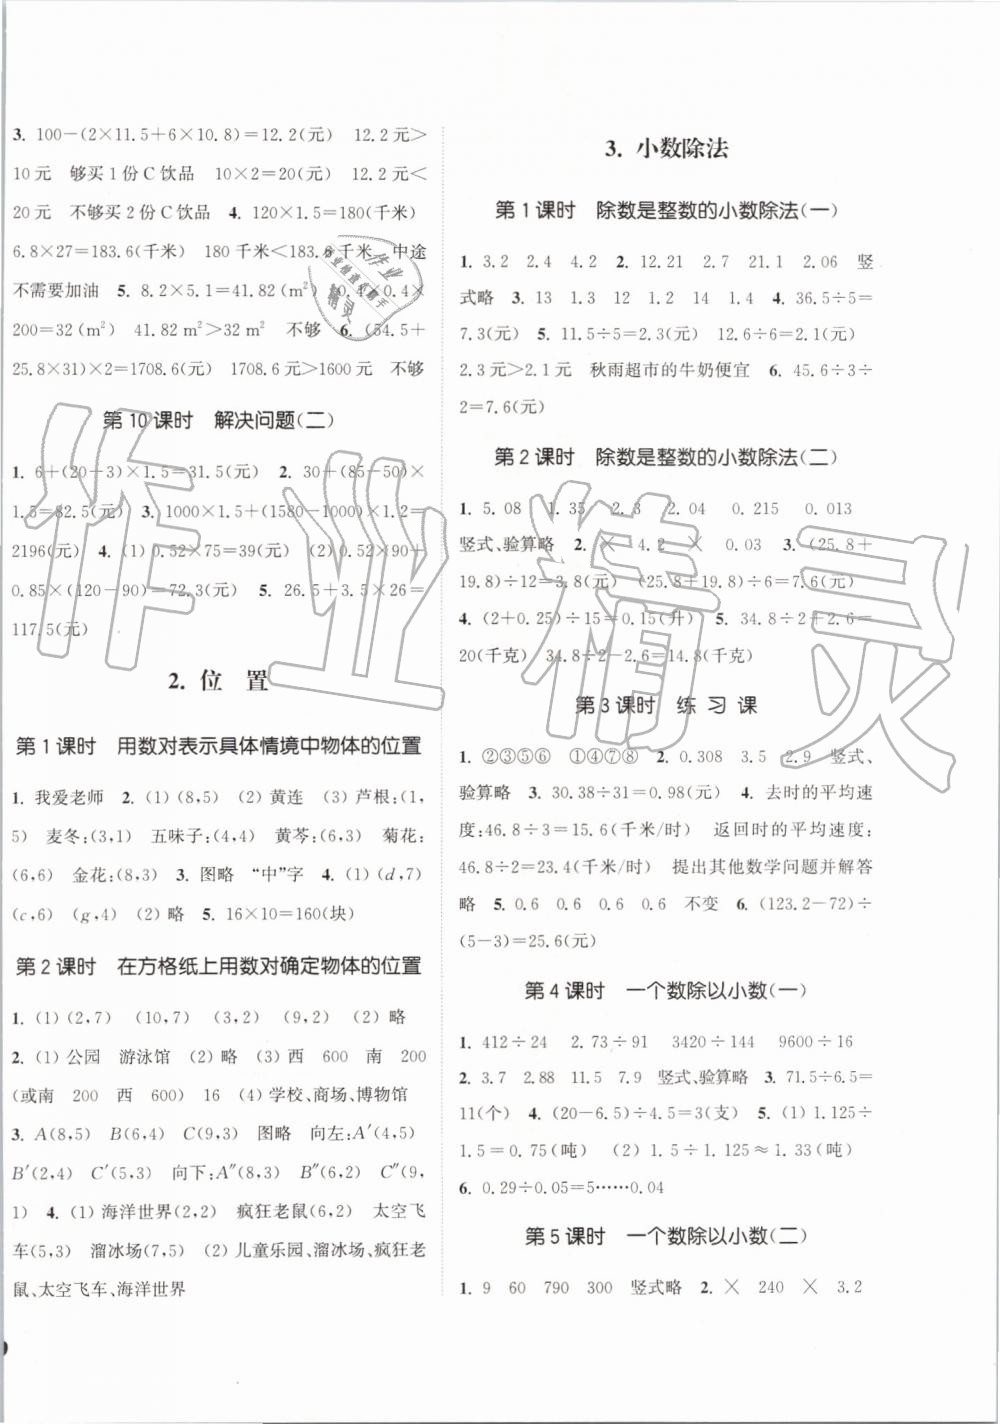 3. 100-(2×11.5+6×10.8)=12.2(元) 12.2元>
10元 够买1份C饮品 10×2=20(元) 12.2元<
20元 不够买2份C饮品 4. 120×1.5=180(千米)
6.8×27=183.6(千米) 180千米<183.6千米 中途
不需要加油 5. 8.2×5.1=41.82(m²) 0.4×0.4×
200=32(m²) 41.82 m²>32 m² 不够 6. (54.5+
25.8×31)×2=1708.6(元) 1708.6元>1600元 不够
第10课时 解决问题(二)
1. 6+(20-3)×1.5=31.5(元) 2. 30+(85-50)×
1.5=82.5(元) 3. 1000×1.5+(1580-1000)×1.2=
2196(元) 4. (1)0.52×75=39(元) (2)0.52×90+
0.85×(120-90)=72.3(元) 5. 26.5+3.5×26=
117.5(元)
2. 位 置
第1课时 用数对表示具体情境中物体的位置
1. 我爱老师 2. (1)(8,5) (2)黄连 (3)芦根:(1,
5) 麦冬:(3,1) 五味子:(4,4) 黄芩:(6,3) 菊花:
(6,6) 金花:(8,3) 3. 图略 “中”字 4. (1)(d,7)
(c,6) (g,4) (2)略 5. 16×10=160(块)
第2课时 在方格纸上用数对确定物体的位置
1. (1)(2,7) (10,7) (3,2) (9,2) (2)略
2. (1)公园 游泳馆 (2)略 (3)西 600 南 200
(或南 200 西 600) 16 (4)学校、商场、博物馆
3. A(8,5) B(6,4) C(9,3) 图略 向左:A′(4,5)
B′(2,4) C′(5,3) 向下:A″(8,3) B″(6,2) C″(9,
1) 4. (1)海洋世界(2,2) 疯狂老鼠(6,6) 太空飞
车(5,3) 溜冰场(7,5) (2)儿童乐园、溜冰场、疯狂老
鼠、太空飞车、海洋世界
3. 小数除法
第1课时 除数是整数的小数除法(一)
1. 3.2 2.4 4.2 2. 12.21 2.7 21.1 2.06 竖
式略 3. 13 1.3 12 1.2 14 1.4 4. 36.5÷5=
7.3(元) 5. 11.5÷5=2.3(元) 12.6÷6=2.1(元)
2.3元>2.1元 秋雨超市的牛奶便宜 6. 45.6÷3÷
2=7.6(元)
第2课时 除数是整数的小数除法(二)
1. 5.08 1.35 2.3 2.04 0.215 0.013
竖式、验算略 2. × 4.2 × 0.03 3. (25.8+
19.8)÷12=3.8(元) (25.8+19.8)÷6=7.6(元)
4. (2+0.25)÷15=0.15(升) 5. 34.8÷2+2.6=
20(千克) 34.8÷2-2.6=14.8(千克)
第3课时 练 习 课
1. ②③⑤⑥ ①④⑦⑧ 2. 0.308 3.5 2.9 竖式、
验算略 3. 30.38÷31=0.98(元) 4. 去时的平均速
度:46.8÷3=15.6(千米/时) 返回时的平均速度:
46.8÷2=23.4(千米/时) 提出其他数学问题并解答
略 5. 0.6 0.6 0.6 0.6 不变 6. (123.2-72)÷
(5-3)=25.6(元)
第4课时 一个数除以小数(一)
1. 412÷24 2.73÷91 3420÷144 9600÷16
2. 3.7 2.88 11.5 7.9 竖式、验算略 3. 71.5÷6.5=
11(个) 4. (20-6.5)÷4.5=3(支) 5. (1)1.125÷
1.5=0.75(吨) (2)1.5÷1.125≈1.33(吨)
6. 0.29÷0.05=5……0.04
第5课时 一个数除以小数(二)
1. 9 60 790 300 竖式略 2. × 240 × 3.2
作业精灵